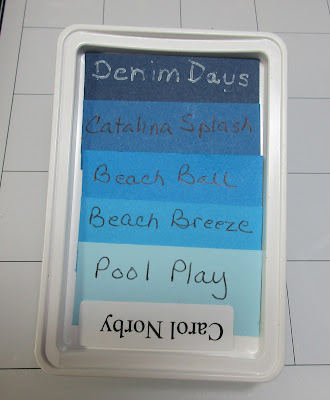 Denim Days
Catalina Splash
Beach Ball
Beach Breeze
Pool Play
Carol Norby